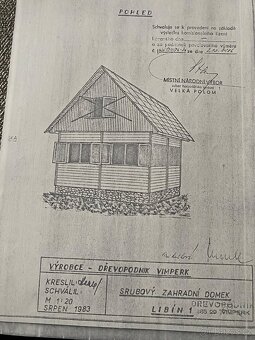 POHLED
Schvaluje se k provedení na základě
výsledku komisionelního řízení
a za podmínek povolovacího výměru
MÍSTNÍ NÁRODNÍ VÝBOR
VELKÁ POLOM
VÝROBCE - DŘEVOPODNIK VIMPERK
KRESLIL:
SCHVÁLIL:
M 1:20
SRPEN 1983
SRUBOVÝ ZAHRADNÍ DOMEK
LIBÍN 1
DŘEVOPODNIK
385 00 VIMPERK